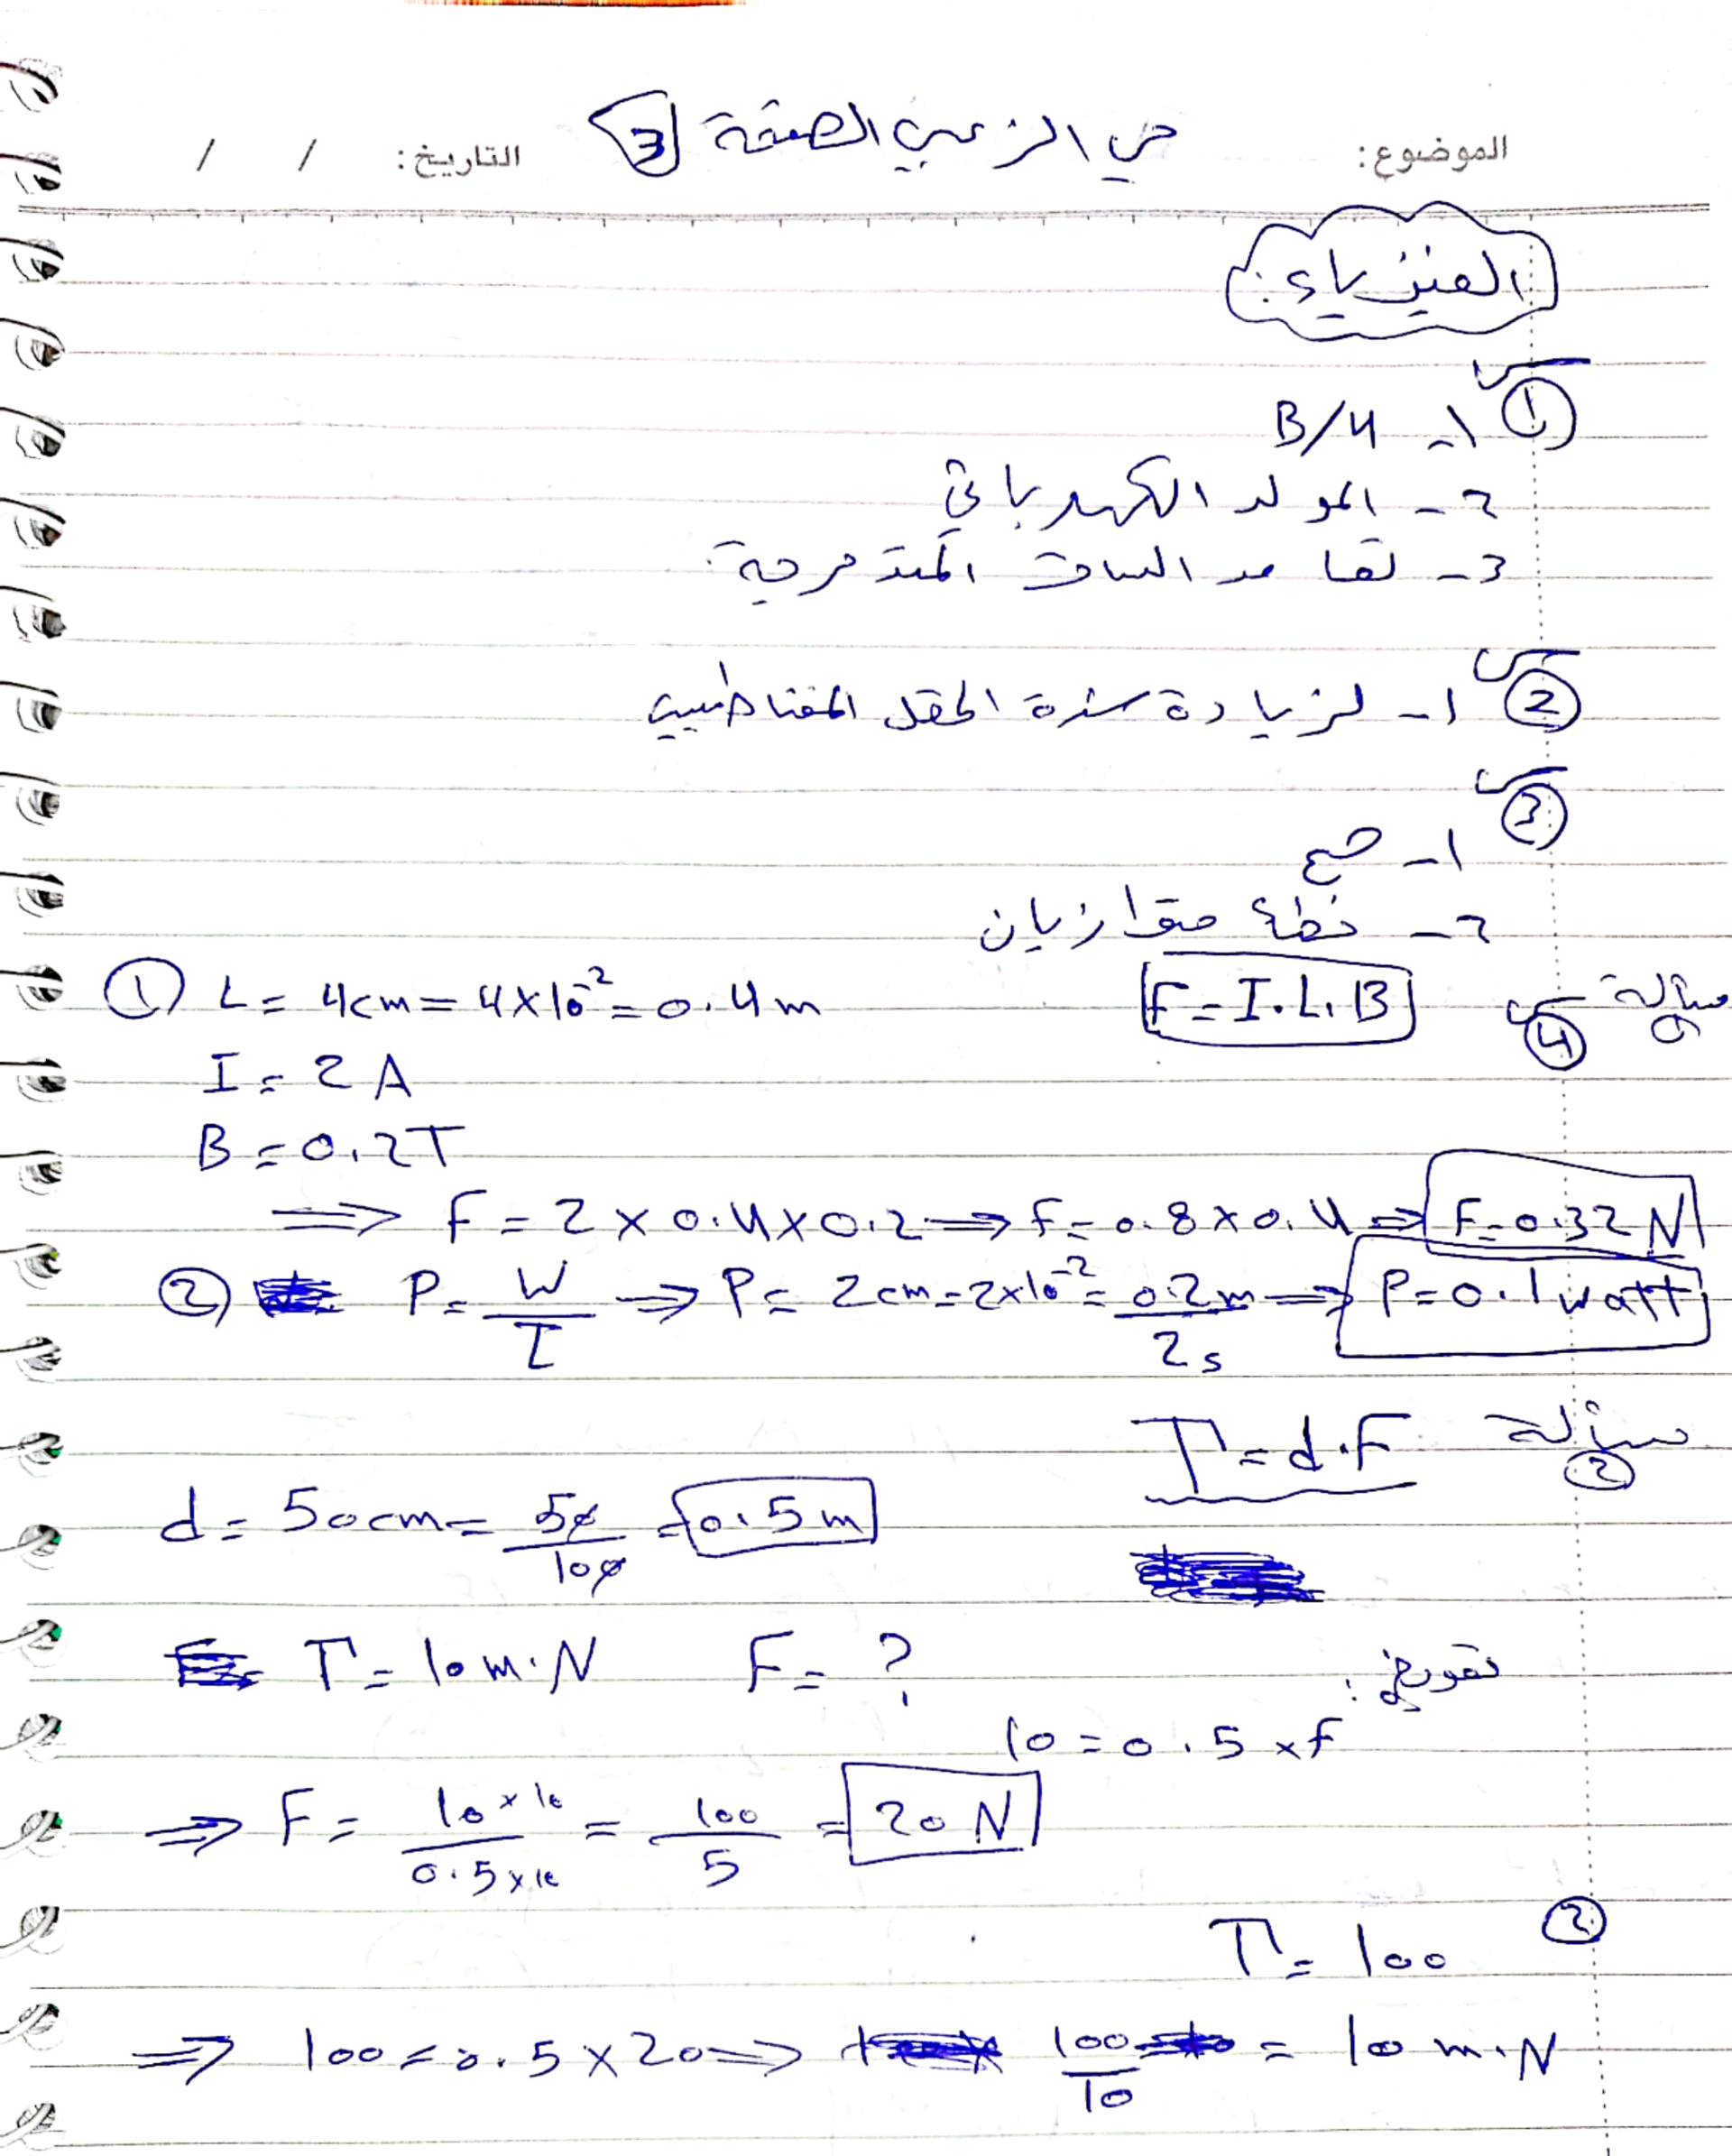 الموضوع: مي الزعبي الصفحة 3 التاريخ: / /
الفيزياء:
① 1- B/4
2- المولد الكهربائي
3- تقا مد الساق المتدحرجة.
② 1- لزيادة شدة الحقل المغناطيسي
③
1- صح
2- خطأ متوازيان
مسألة ④ F = I.L.B
① L = 4cm = 4×10⁻² = 0.4m
I = 2 A
B = 0.2T
⇒ F = 2 × 0.4 × 0.2 ⇒ F = 0.8 × 0.4 ⇒ F = 0.32 N
② P = W/t ⇒ P = 2cm = 2×10⁻² = 0.2m/2s ⇒ P = 0.1 watt
مسألة ② Γ = d.F
d = 50cm = 50/100 = 0.5m
Γ = 10 m.N F = ?
تعويض:
10 = 0.5 × F
⇒ F = 10×10/0.5×10 = 100/5 = 20 N
② Γ = 100
⇒ 100 = 0.5 × 20 ⇒ 100/10 = 10 m.N